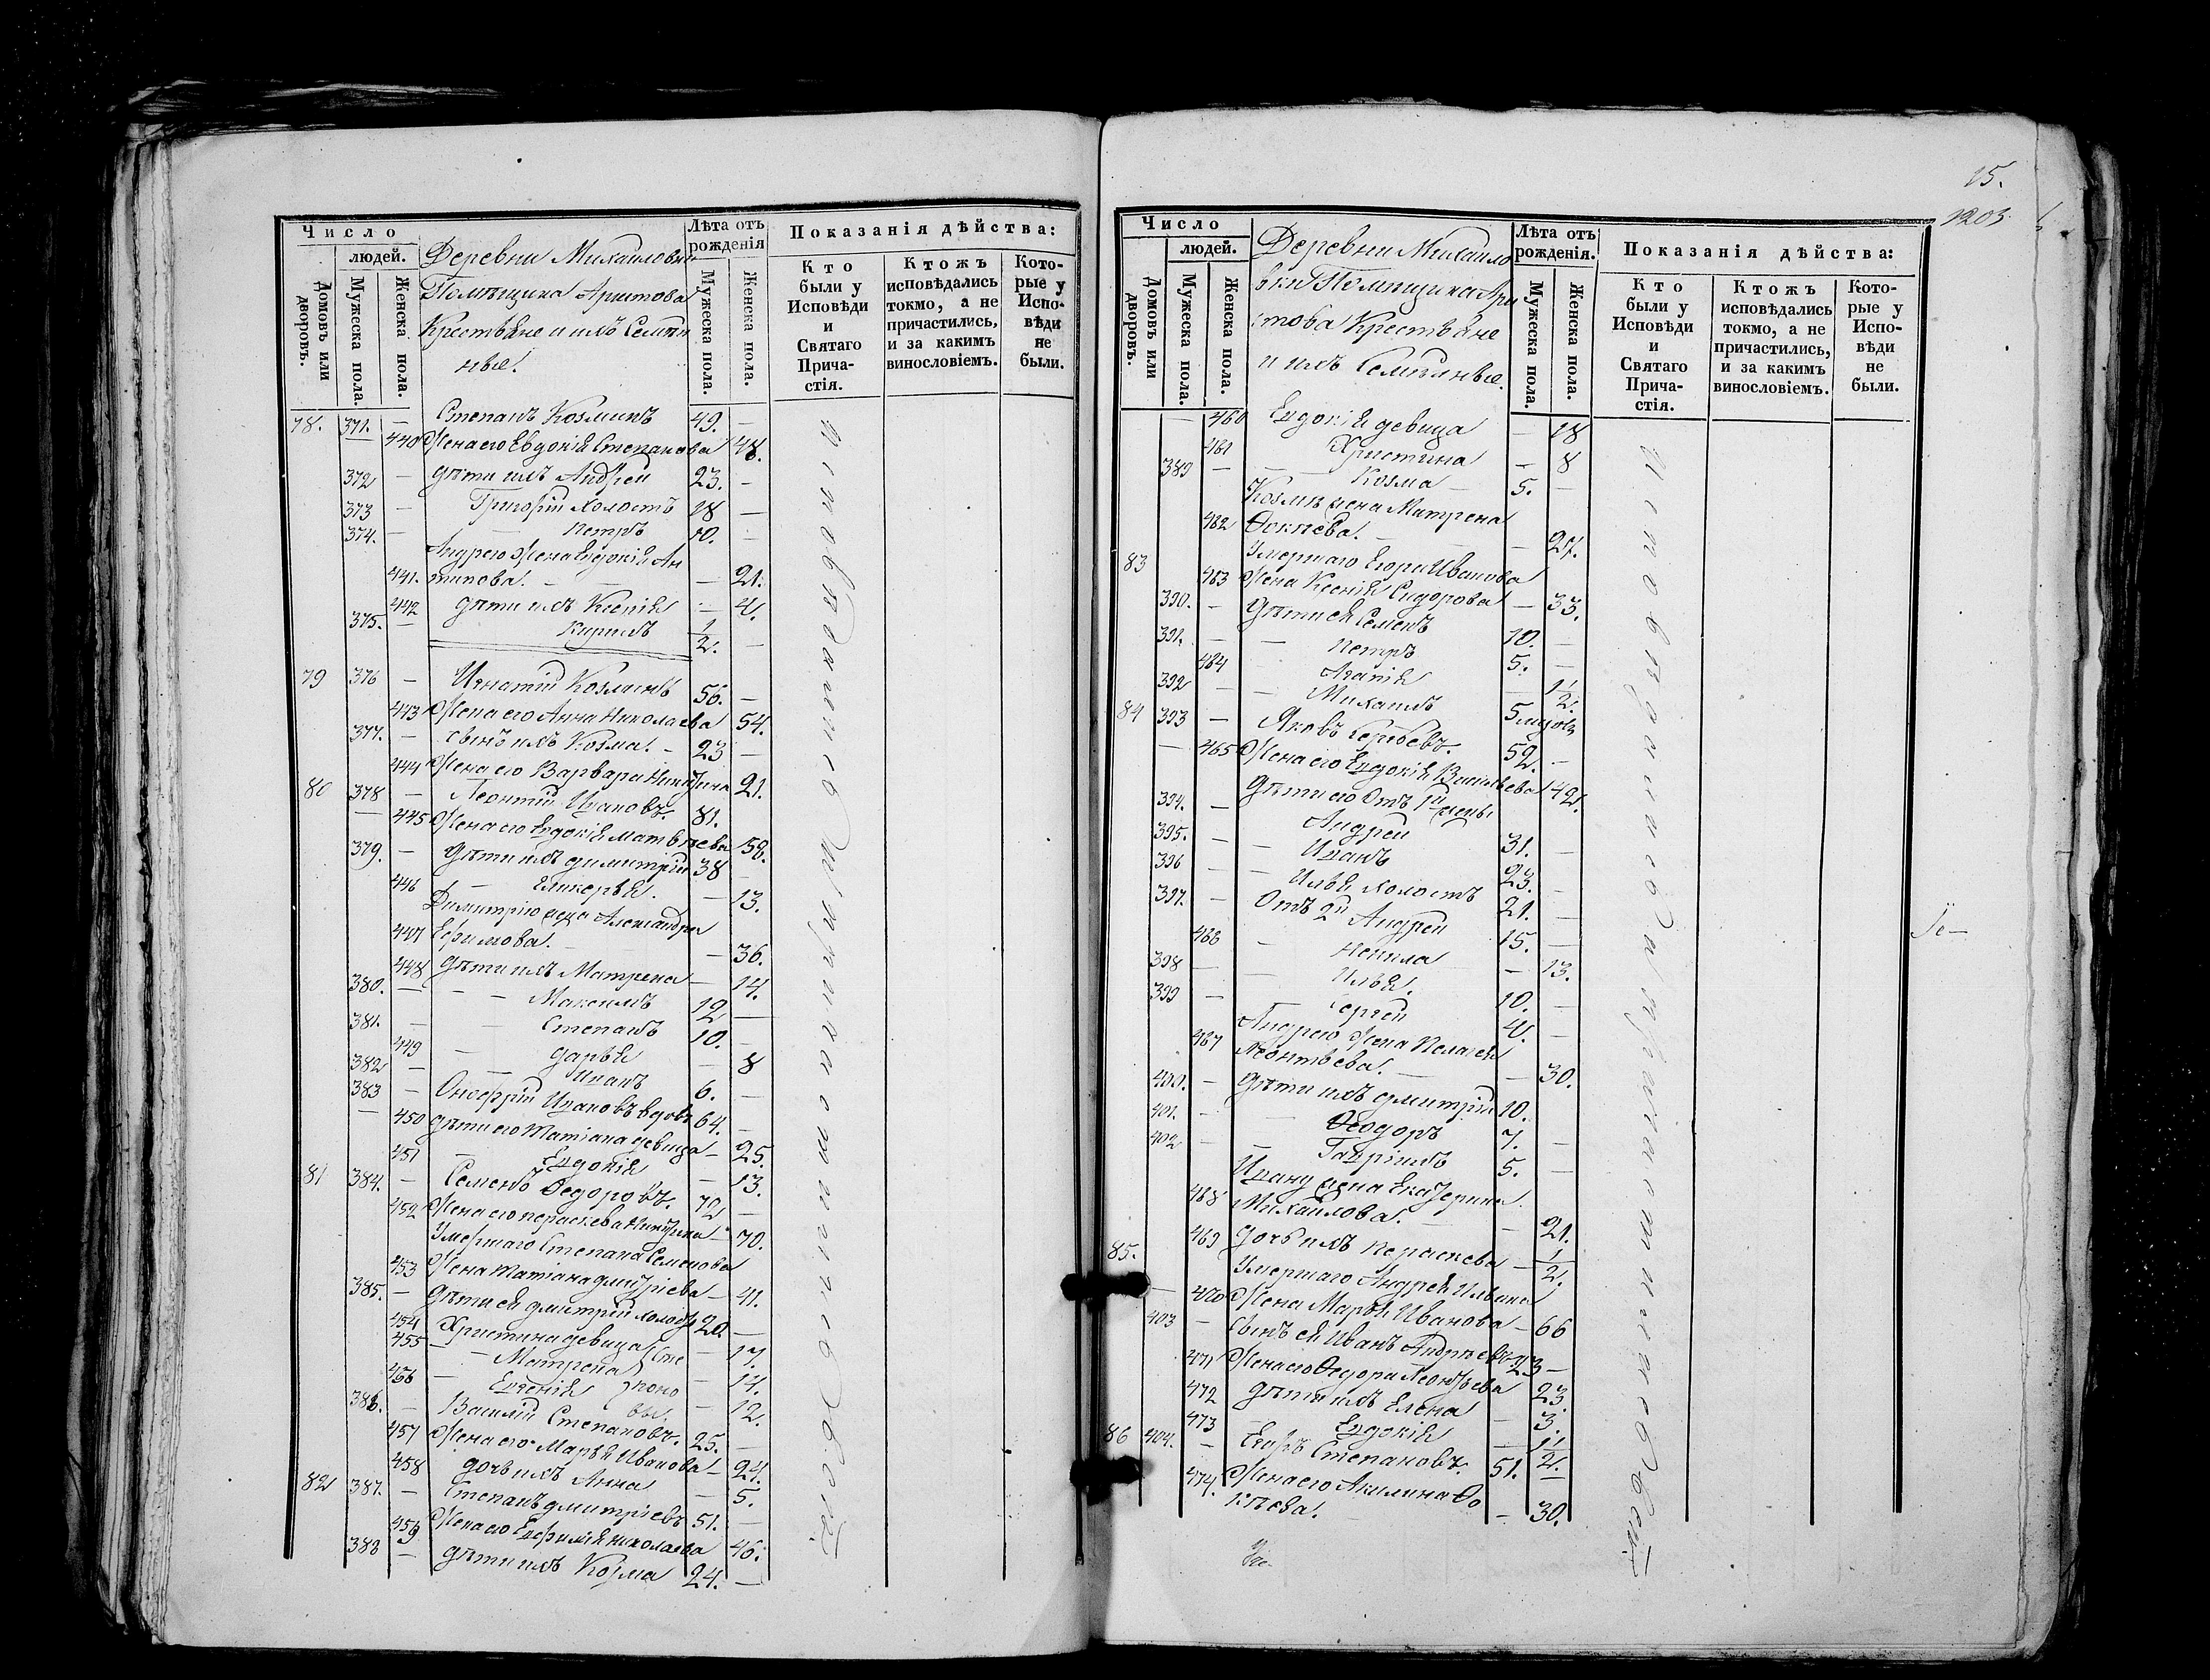 Число
людей.
Домовъ или дворовъ.
Мужеска пола.
Женска пола.
Деревни Михаиловки
Помѣщика Аристова
Крестьяне и ихъ Семей
ные.
Лѣта отъ рожденія
Мужеска пола.
Женска пола.
Показанія дѣйства:
Кто были у Исповѣди и Святаго Прича-стія.
Ктожъ исповѣдались токмо, а не причастились, и за какимъ винословіемъ.
Кото-рые у Испо-вѣди не были.
78. 371. — Степанъ Козминъ 49. —
440 Жена его Евдокія Степанова 48.
372 — дѣти ихъ Андрей 23. —
373 — Григорій холостъ 18 —
374. — — Петръ 10. —
Андрею жена Евдокія Ан
441. типова. — — — 21.
442 дѣти ихъ Ксенія — 4.
375. — Кирилъ 1/2. —
79 376 — Игнатій Козминъ 56. —
443 Жена его Анна Николаева 54.
377. — сынъ ихъ Козма. — 23 —
444 Жена его Варвара Никитина 21.
80 378 — Леонтій Ивановъ. 81.
— 445 Жена его Евдокія Матвѣева 58.
379. — дѣти ихъ Димитрій 38 —
446 — Гликерья. — 13.
Димитрію жена Александра
447 Ефимова. — — 36.
448 дѣти ихъ Матрена — 14.
380. — — — Максимъ 12 —
381. — — Степанъ 10. —
449 — Дарья — 8
382 — — Иванъ 6. —
383 — Онофрій Ивановъ вдовъ 64. —
— 450 дѣти его Татіана девица — 25.
451 — Евдокія — 13.
81 384. — Семенъ Ѳедоровъ. 72 —
452 Жена его Пераскева Никитина — 70.
Умершаго Степана Семенова
453 Жена Татіана Дмитріева — 41.
385. — дѣти ея Дмитрій холостъ 20. —
454 Христина девица — 17.
455 — Матрена Сте — 14.
456 — Евгенія пано — 12.
вы.
386. — Василій Степановъ. 25. —
457 Жена его Марья Иванова — 24.
458 дочь ихъ Анна — 5.
82 387. — Степанъ Дмитріевъ 51. —
459 Жена его Евфимія Николаева 46.
388 — дѣти ихъ Козма 24. —
15.
1203.
Число
людей.
Домовъ или дворовъ.
Мужеска пола.
Женска пола.
Деревни Михаило
вки Помѣщика Ари
стова Крестьяне
и ихъ Семейные.
Лѣта отъ рожденія.
Мужеска пола.
Женска пола.
Показанія дѣйства:
Кто были у Исповѣди и Святаго Прича-стія.
Ктожъ исповѣдались токмо, а не причастились, и за какимъ винословіемъ.
Кото-рые у Испо-вѣди не были.
— 460 Евдокія девица — 18
461 Христина — 8
389 — — Козма — 5. —
Козмѣ жена Матрена
462 Ѳокіева. — — 21.
83 Умершаго Егора Иванова
463 Жена Ксенія Сидорова — 33.
390. — дѣти ея Семенъ 10. —
391. — — Петръ 5. —
464 Агапія — 1/2.
392 — — Михаилъ 5 мѣсяцъ
84 393 — Яковъ Сергѣевъ. 52. —
— 465 Жена его Евдокія Васильева 42.
дѣти его Отъ 1й жены
394. — Андрей 31. —
395. — — Иванъ 23. —
396 — — Илья холостъ 21. —
397. — Отъ 2й Андрей 15. —
466 — Ненила — 13.
398 — — Илья. 10. —
399 — Сергей 4. —
Андрею Жена Пелагея
467 Леонтьева. — — 30.
400. — дѣти ихъ Дмитрій 10.
401. — — Ѳеодоръ 7. —
402 — — Гавріилъ 5. —
Ивану жена Екатерина
468 Михаилова. — — 21.
469 дочь ихъ Пераскева — 1/2.
85. Умершаго Андрея Ильина
— 470 Жена Марья Иванова — 66
403 — сынъ ея Иванъ Андрѣевъ 23 —
471 Жена его Ѳедора Леонтьева 23.
472 дѣти ихъ Елена — 3.
473 — Евдокія — 1 1/2.
86 404. — Егоръ Степановъ. 51. —
474. Жена его Акилина Ѳо
кіева. — 30.